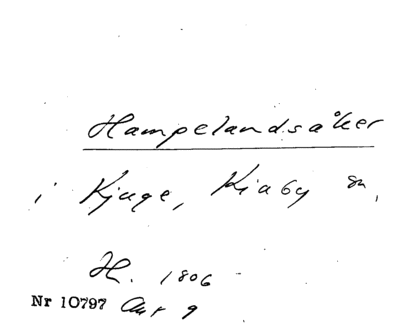 Hampelandsåker
i Kjuge, Kiaby sn,
H. 1806
Nr 10797 Akt 9